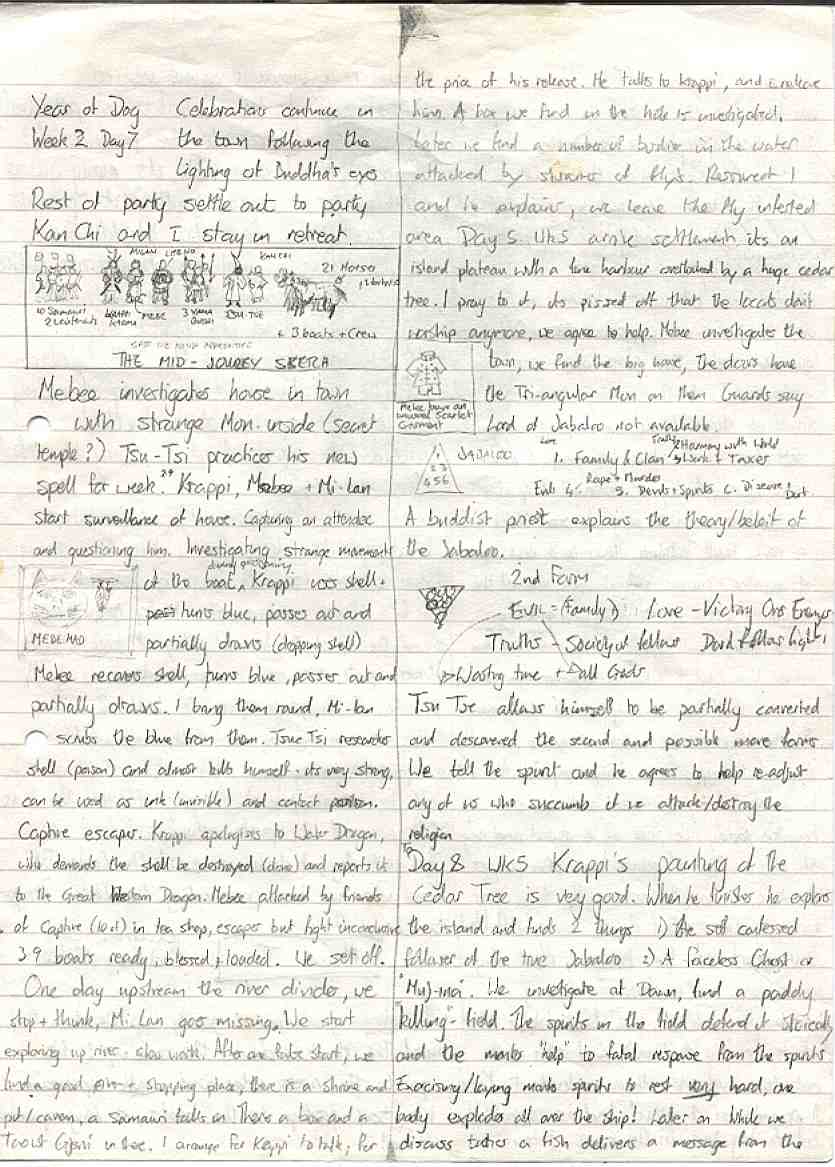 Year of Dog Celebrations continue in
Week 2 Day 7 the town following the
Lighting of Buddha's eyes
Rest of party settle out to party
Kan Chi and I stay in retreat.
MILAN
KAN CHI
21 Horses
10 Samurai
2 Lieutenants
MEBE
3 YAMA
TSU-TSE
+ 3 boats + Crew
THE MID-JOUREY SKERA
Mebee investigates house in town
with strange Mon inside (secret
temple?) Tsu-Tsi practices his new
spell for week. Krappi, Mebee + Mi-lan
start surveillance of house. Capturing an attendee
and questioning him. Investigating strange movements
of the boat, Krappi uses shell.
turns blue, passes out and
partially drowns (dropping shell)
MEBE MAD
Mebee recovers shell, turns blue, passes out and
partially drowns. I bang them round, Mi-lan
scrubs the blue from them. Tsue Tsi researches
shell (poison) and almost kills himself. its very strong,
can be used as ink (invisible) and contact poison.
Captive escapes. Krappi apologises to Water Dragon,
who demands the shell be destroyed (done) and reports it
to the Great Western Dragon. Mebee attacked by friends
of Captive (10 of) in tea shop, escapes but fight inconclusive
39 boats ready, blessed, + loaded. We set off.
One day upstream the river divides, we
stop + think, Mi Lan goes missing. We start
exploring up river - slow work. After one false start, we
find a good stopping place, there is a shrine and
pit/cavern, a Samauri falls in. There's a box and a
in there. I arrange for Krappi to talk, for
the price of his release. He talks to Krappi, and
him. A box we find in the hole is investigated.
Later we find a number of bodies in the water
attacked by swarms of fly's. Ressurect 1
and he explains, we leave the fly infested
area Day 5 Wk5 arrive settlement its an
island plateau with a fine harbour overlooked by a huge cedar
tree. I pray to it, its pissed off that the locals don't
worship anymore, we agree to help. Mebee investigates the
town, we find the big house, The doors have
the Tri-angular Mon on them Guards say
Lord of Jabaloo not available.
Mebee buys an
unusual Scarlet
Garment
1
2 3
4 5 6
JABALOO
Love
1. Family & Clan
2 Harmony with World
3 Work + Taxes
Evils 4. Rape + Murder
5. Devils + Spirits 6. Disease
A buddist priest explains the theory/beleif of
the Jabaloo.
2nd Form
EVIL = (Family?) Love - Victory Over Enemys
Truths - Society of fellows
Wasting time + all Gods
Tsu Tse allows himself to be partially converted
and descovered the second and possible more forms
We tell the spirit and he agrees to help re-adjust
any of us who succumb if we attack/destroy the
religion
To
Day 8 Wk5 Krappi's painting of the
Cedar Tree is very good. When he finishes he explores
the island and finds 2 things 1) The soft confessed
follower of the true Jabaloo 2) A Faceless Ghost or
"Muj-ina". We investigate at Dawn, find a paddy
"killing"-field. The spirits in the field defend it stoically
and the monks "help" to fatal response from the spirits
Exorcising/laying monks spirits to rest very hard, one
body explodes all over the ship! Later on while we
discuss tactics a fish delivers a message from the